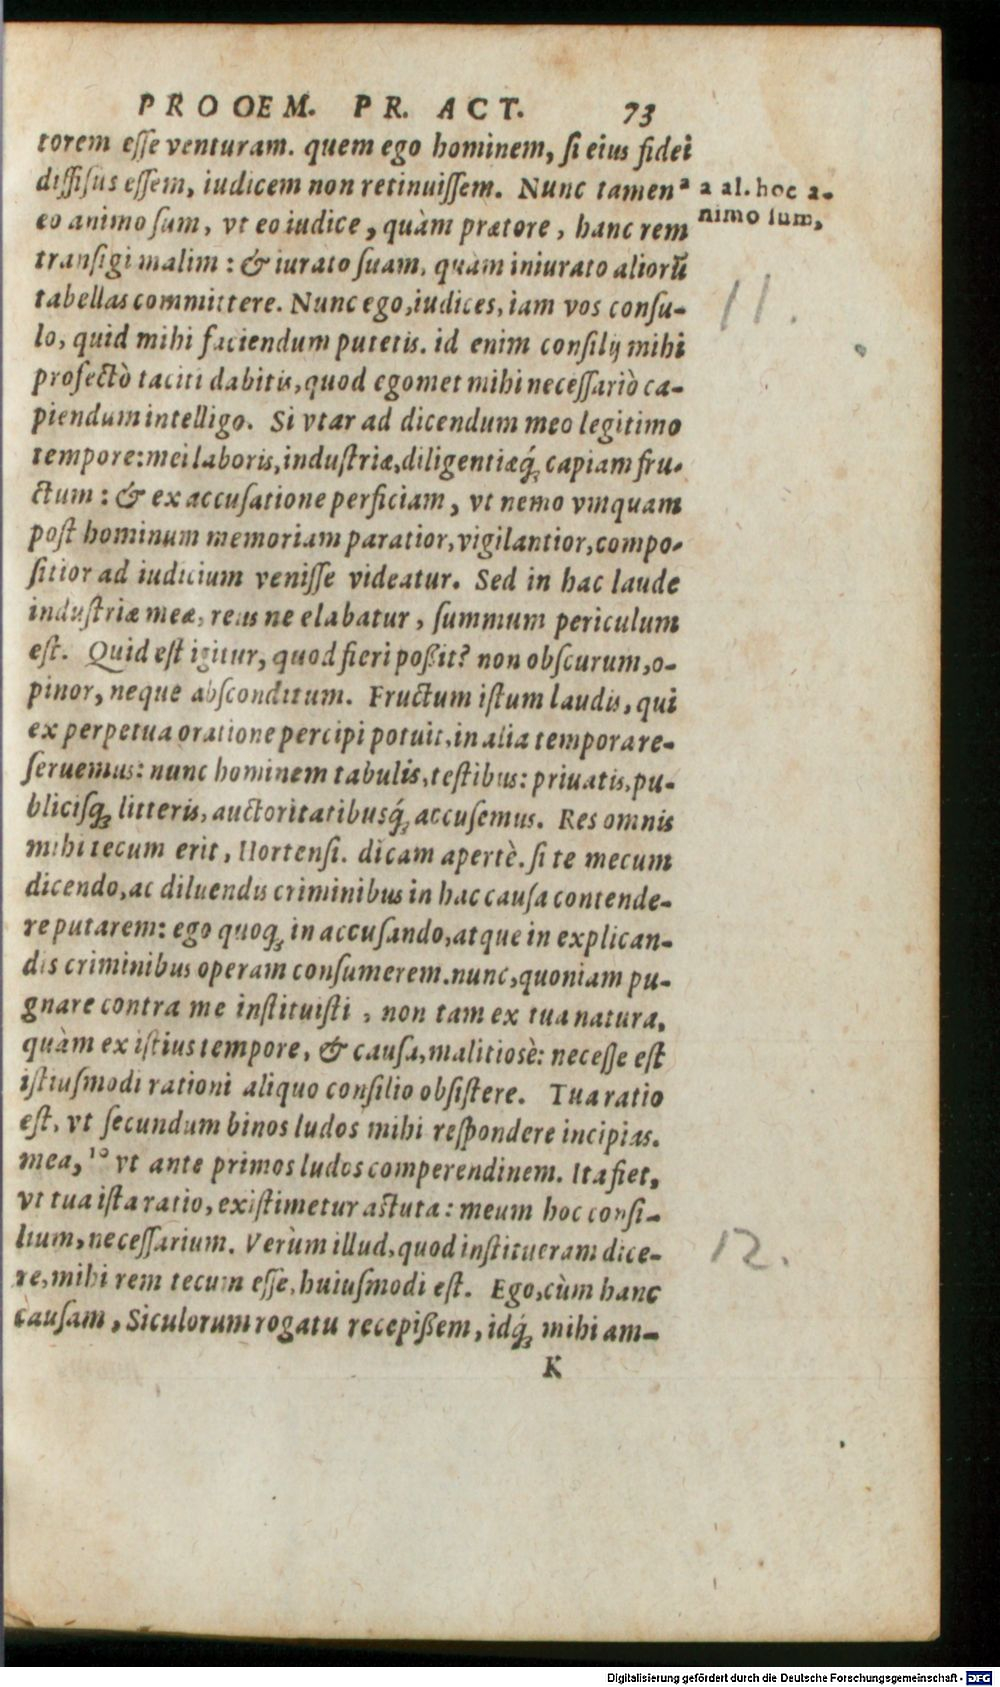 PROOEM. PR. ACT. 73
torem esse venturam. quem ego hominem, si eius fidei
diffisus essem, iudicem non retinuissem. Nunc tamenᵃ
a al. hoc a-
nimo sum,
eo animo sum, vt eo iudice, quàm prætore, hanc rem
transigi malim: & iurato suam, quàm iniurato aliorũ
tabellas committere. Nunc ego, iudices, iam vos consu-
11.
lo, quid mihi faciendum putetis. id enim consilij mihi
profectò taciti dabitis, quod egomet mihi necessariò ca-
piendum intelligo. Si vtar ad dicendum meo legitimo
tempore: mei laboris, industriæ, diligentiæq́; capiam fru-
ctum: & ex accusatione perficiam, vt nemo vmquam
post hominum memoriam paratior, vigilantior, compo-
sitior ad iudicium venisse videatur. Sed in hac laude
industriæ meæ, reus ne elabatur, summum periculum
est. Quid est igitur, quod fieri poßit? non obscurum, o-
pinor, neque absconditum. Fructum istum laudis, qui
ex perpetua oratione percipi potuit, in alia tempora re-
seruemus: nunc hominem tabulis, testibus: priuatis, pu-
blicisq; litteris, auctoritatibusq́; accusemus. Res omnis
mihi tecum erit, Hortensi. dicam apertè. si te mecum
dicendo, ac diluendis criminibus in hac causa contende-
re putarem: ego quoq; in accusando, atque in explican-
dis criminibus operam consumerem. nunc, quoniam pu-
gnare contra me instituisti, non tam ex tua natura,
quàm ex istius tempore, & causa, malitiosè: necesse est
istiusmodi rationi aliquo consilio obsistere. Tua ratio
est, vt secundum binos ludos mihi respondere incipias.
mea, ¹⁰ vt ante primos ludos comperendinem. Ita fiet,
vt tua ista ratio, existimetur astuta: meum hoc consi-
lium, necessarium. Verùm illud, quod institueram dice-
12.
re, mihi rem tecum esse, huiusmodi est. Ego, cùm hanc
causam, Siculorum rogatu recepißem, idq́; mihi am-
K
Digitalisierung gefördert durch die Deutsche Forschungsgemeinschaft - DFG